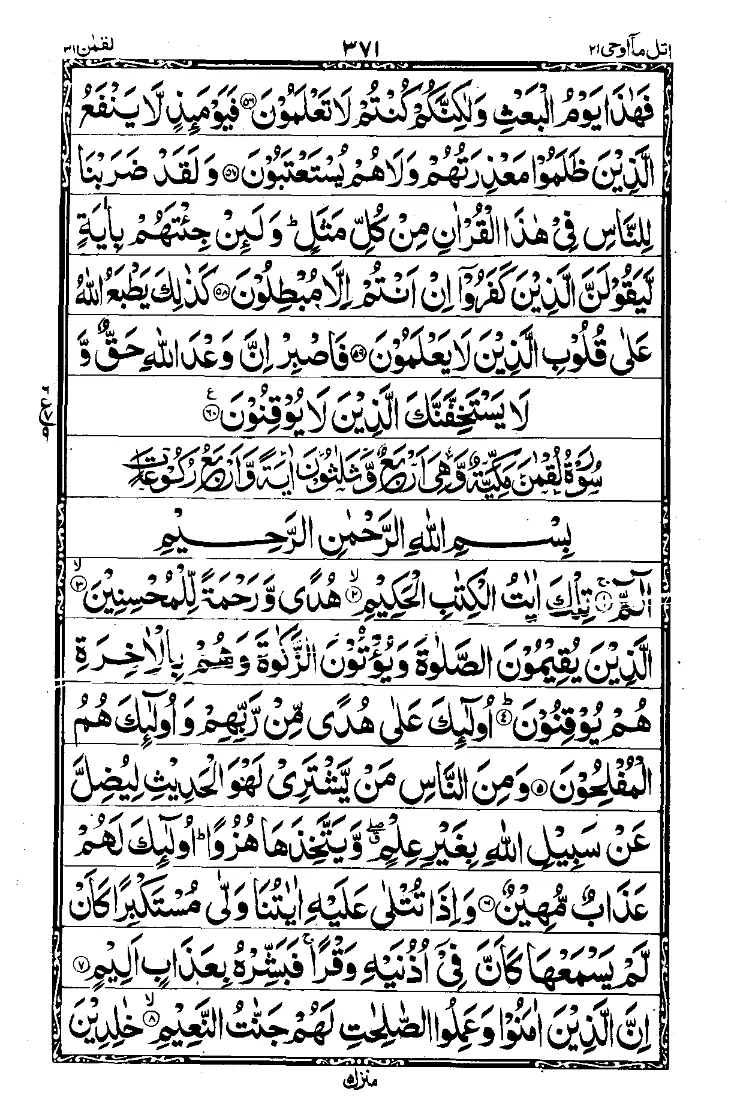 اتل مآ اوحی ۲۱ ۳۷۱ لقمٰن ۳۱
فَهٰذَا یَوْمُ الْبَعْثِ وَلٰكِنَّكُمْ كُنْتُمْ لَا تَعْلَمُوْنَ ۵۶ فَیَوْمَىِٕذٍ لَّا یَنْفَعُ
الَّذِیْنَ ظَلَمُوْا مَعْذِرَتُهُمْ وَلَا هُمْ یُسْتَعْتَبُوْنَ ۵۷ وَ لَقَدْ ضَرَبْنَا
لِلنَّاسِ فِیْ هٰذَا الْقُرْاٰنِ مِنْ كُلِّ مَثَلٍ ؕ وَ لَىِٕنْ جِئْتَهُمْ بِاٰیَةٍ
لَّیَقُوْلَنَّ الَّذِیْنَ كَفَرُوْۤا اِنْ اَنْتُمْ اِلَّا مُبْطِلُوْنَ ۵۸ كَذٰلِكَ یَطْبَعُ اللّٰهُ
عَلٰى قُلُوْبِ الَّذِیْنَ لَا یَعْلَمُوْنَ ۵۹ فَاصْبِرْ اِنَّ وَعْدَ اللّٰهِ حَقٌّ وَّ
لَا یَسْتَخِفَّنَّكَ الَّذِیْنَ لَا یُوْقِنُوْنَ ۶۰ ع
سُوْرَةُ لُقْمٰنَ مَكِّیَّةٌ وَّهِیَ اَرْبَعٌ وَّثَلٰثُوْنَ اٰیَةً وَّاَرْبَعُ رُكُوْعَاتٍ
بِسْمِ اللّٰهِ الرَّحْمٰنِ الرَّحِیْمِ
الٓمّٓ ۱ ۚ تِلْكَ اٰیٰتُ الْكِتٰبِ الْحَكِیْمِ ۲ ۙ هُدًى وَّ رَحْمَةً لِّلْمُحْسِنِیْنَ ۳ ۙ
الَّذِیْنَ یُقِیْمُوْنَ الصَّلٰوةَ وَ یُؤْتُوْنَ الزَّكٰوةَ وَ هُمْ بِالْاٰخِرَةِ
هُمْ یُوْقِنُوْنَ ۴ ؕ اُولٰٓىِٕكَ عَلٰى هُدًى مِّنْ رَّبِّهِمْ وَ اُولٰٓىِٕكَ هُمُ
الْمُفْلِحُوْنَ ۵ وَ مِنَ النَّاسِ مَنْ یَّشْتَرِیْ لَهْوَ الْحَدِیْثِ لِیُضِلَّ
عَنْ سَبِیْلِ اللّٰهِ بِغَیْرِ عِلْمٍ ۖق وَّ یَتَّخِذَهَا هُزُوًا ؕ اُولٰٓىِٕكَ لَهُمْ
عَذَابٌ مُّهِیْنٌ ۶ وَ اِذَا تُتْلٰى عَلَیْهِ اٰیٰتُنَا وَلّٰى مُسْتَكْبِرًا كَاَنْ
لَّمْ یَسْمَعْهَا كَاَنَّ فِیْۤ اُذُنَیْهِ وَقْرًا ۚ فَبَشِّرْهُ بِعَذَابٍ اَلِیْمٍ ۷
اِنَّ الَّذِیْنَ اٰمَنُوْا وَ عَمِلُوا الصّٰلِحٰتِ لَهُمْ جَنّٰتُ النَّعِیْمِ ۸ ۙ خٰلِدِیْنَ
منزل ۵